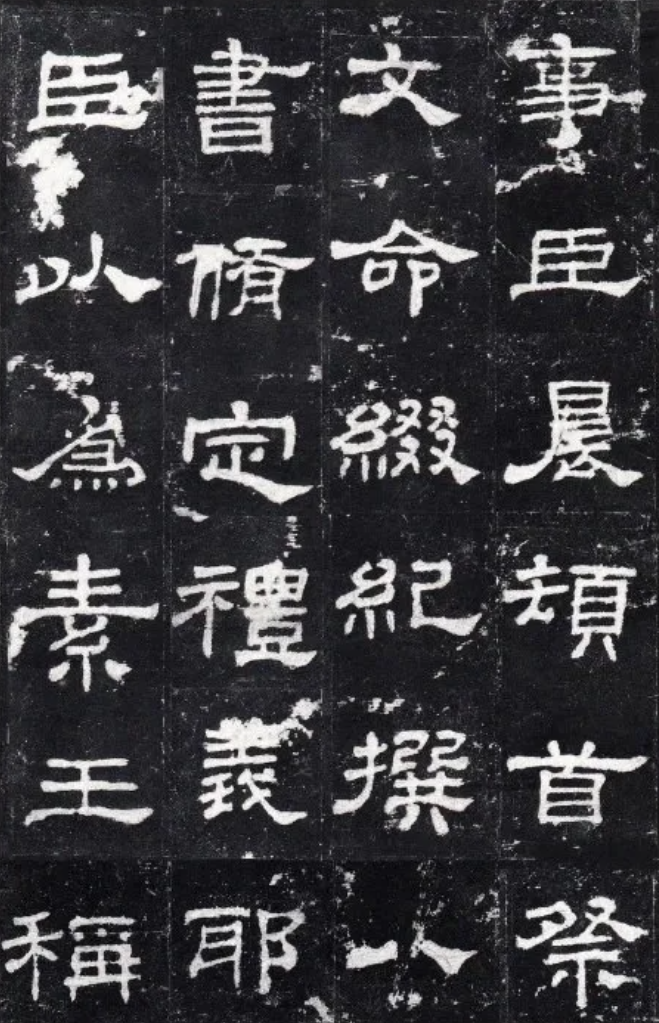 事臣晨頓首祭
文命綴紀撰八
書脩定禮義耶
臣以爲素王稱